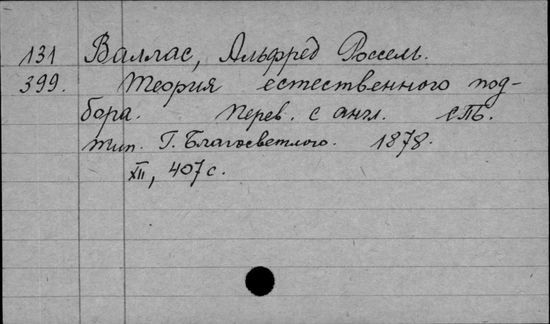 131 Валлас, Альфред Россель.
399. Теория естественного под-
бора. Перев. с англ. СПБ.
тип. Г. Благосветлого. 1878.
XII, 407 с.